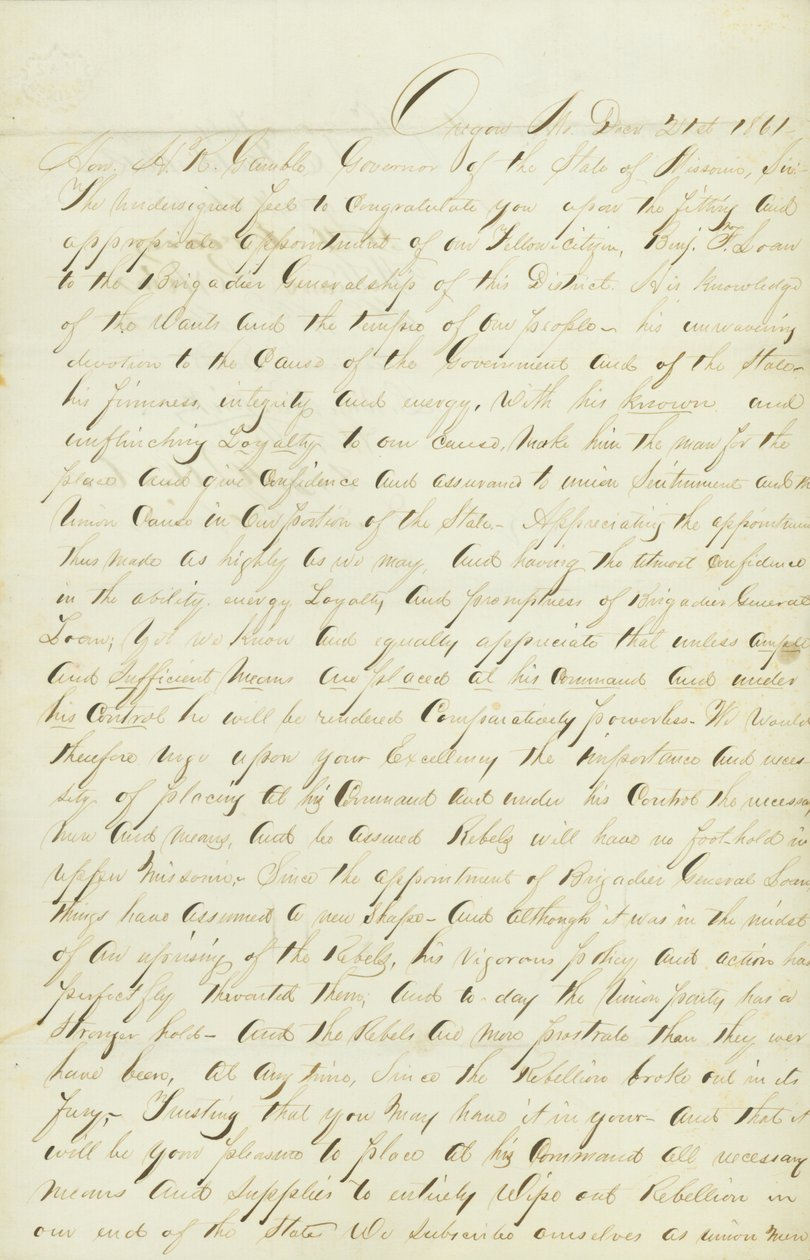 Oregon Mo. Decr 21st 1861
Hon. H. R. Gamble Governor of the State of Missouri, Sir:-
The undersigned feel to congratulate you upon the fitting and
appropriate appointment of our Fellow-citizen, Benj. F. Loan
to the Brigadier Generalship of this District. His knowledge
of the wants and the temper of our people - his unwavering
devotion to the Cause of the Government and of the State -
his firmness, integrity and energy, with his known and
unflinching Loyalty to our cause, make him the man for the
place and give confidence and assurance to union Sentiment and the
Union Cause in our portion of the State.- Appreciating the appointment
thus made as highly as we may, and having the utmost Confidence
in the ability, energy, Loyalty and promptness of Brigadier General
Loan; Yet we know and equally appreciate that unless ample
and Sufficient Means are placed at his Command and under
his Control he will be rendered Comparatively powerless- We would
therefore urge upon your Excellency the importance and neces-
sity of placing at his Command and under his Control the necessary
men and means, and be assured Rebels will have no foot-hold in
upper Missouri,- Since the appointment of Brigadier General Loan
things have assumed a new shape- and although it was in the midst
of an uprising of the Rebels, his vigorous policy and action has
perfectly thwarted them; and to-day the Union party has a
Stronger hold- and the Rebels are more prostrate than they ever
have been, at any time, since the Rebellion broke out in its
fury,- Trusting that you may have it in your- and that it
will be your pleasure to place at his Command all necessary
means and supplies to entirely Wipe out Rebellion in
our end of the State We subscribe ourselves as union men